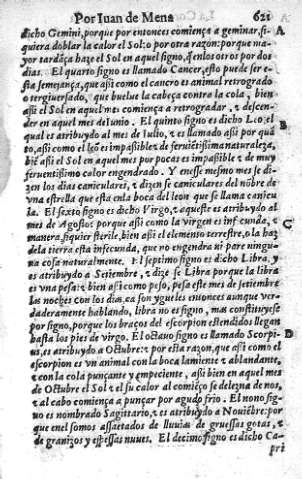 Por Iuan de Mena 621
dicho Gemini, porque por entonces comiença a geminar, si
quiera doblar la calor el Sol: o por otra razon: porque ma-
yor tardãça haze el Sol en aquel signo, q̃ en los otros por dos
dias. El quarto signo es llamado Cancer, esto puede ser e-
sta semejança, que asi como el cancro es animal retrogrado
o tergiuersado, que buelue la cabeça contra la cola, bien
asi el Sol en aquel mes comiença a retrogradar, τ descen-
der en aquel mes de Iunio. El quinto signo es dicho Leo, el
qual es atribuydo al mes de Iulio, τ es llamado asi por quã
to, asi como el leõ es impasibles de feruẽtissima naturaleza,
biẽ asi el Sol en aquel mes por pocas es impasible τ de muy
feruentissimo calor engendrado. Y enesse mesmo mes se di-
zen los dias caniculares, τ dizen se caniculares del nõbre de
vna estrella que esta enla boca del leon que se llama canicu
la. El sexto signo es dicho Virgo, τ aqueste es atribuydo al
mes de Agosto: porque asi como la virgen es infecunda, τ
manera, siquier sterile, bien asi el elemento terrestre, o la haz
dela tierra esta infecunda, que no engendra ni pare ningu-
na cosa naturalmente. El septimo signo es dicho Libra, y
es atribuydo a Setiembre, τ dize se Libra porque la libra
es vna pesa: τ bien asi como peso, pesa este mes de setiembre
las noches con los dias, ca son yguales entonces aunque ver-
daderamente hablando, libra no es signo, mas constituyese
por signo, porque los braços del escorpion estendidos llegan
hasta los pies de virgo. El octauo signo es llamado Scorpi-
us, es atribuydo a Octubre: τ por esta razon, que asi como el
escorpion es vn animal con la boca lamiente τ ablandante,
τ con la cola punçante y empeciente, asi bien en aquel mes
de Octubre el Sol τ el su calor al comiẽço se delezna de nos,
τ al cabo comiença a punçar por agudo frio. El nono sig-
no es nombrado Sagittario, τ es atribuydo a Nouiẽbre: por
que enel somos assaetados de lluuias de gruessas gotas, τ
de granizos y espessas nuues. El decimo signo es dicho Ca-
pri
A
B
C
D